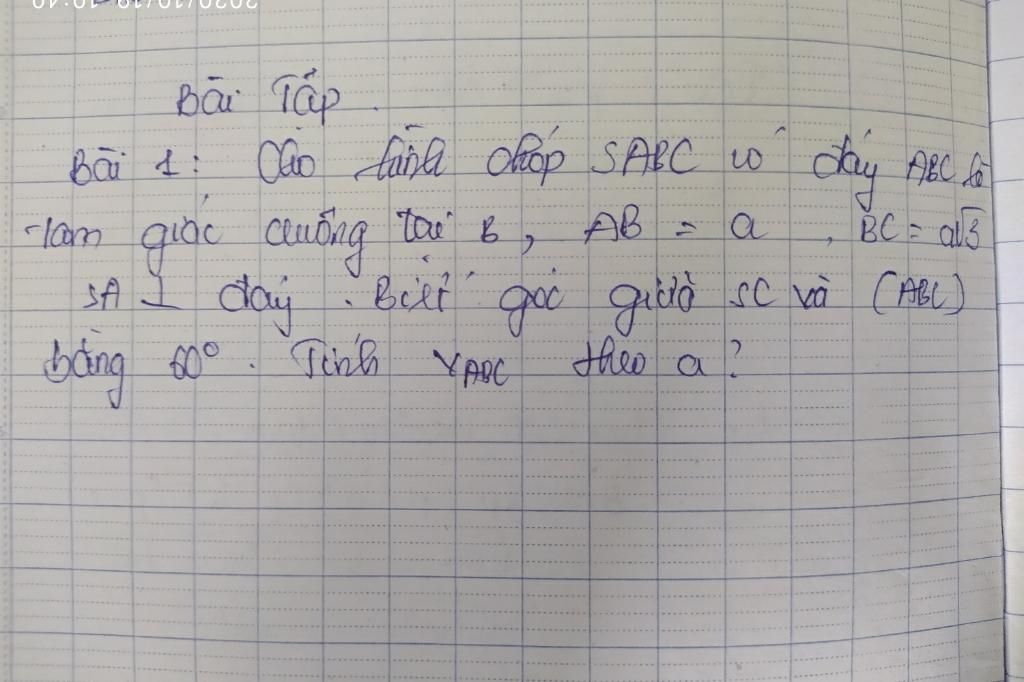 Bài Tập.
Bài 1: Cho hình chóp SABC có đáy ABC là
tam giác vuông tại B, AB = a, BC = a√3
SA ⊥ đáy. Biết góc giữa SC và (ABC)
bằng 60°. Tính V ABC theo a?